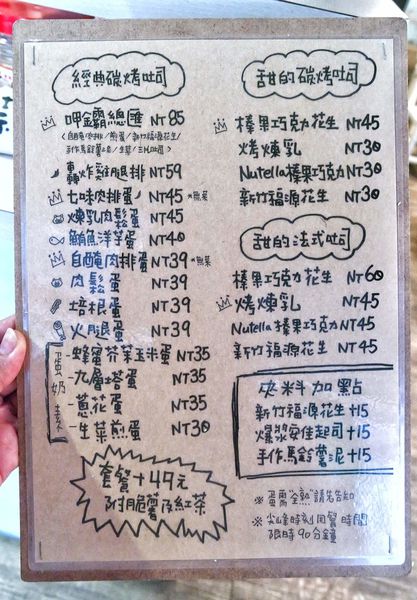 經典碳烤吐司
呷金霸總匯 NT85
(自醃肉排/煎蛋/新竹福源花生/
手作馬鈴薯泥/生菜/三M吐司)
轟炸雞腿排 NT59
七味肉排蛋 NT45 *無菜
煉乳肉鬆蛋 NT45
鮪魚洋芋蛋 NT40
自醃肉排蛋 NT39 *無菜
肉鬆蛋 NT39
培根蛋 NT39
火腿蛋 NT39
蛋奶素
-蜂蜜芥茉玉米蛋 NT35
-九層塔蛋 NT35
-黃花蛋 NT35
-生菜煎蛋 NT30
套餐+49元
附脆薯及紅茶
甜的碳烤吐司
榛果巧克力花生 NT45
烤煉乳 NT30
Nutella榛果巧克力 NT30
新竹福源花生 NT30
甜的法式吐司
榛果巧克力花生 NT60
烤煉乳 NT45
Nutella榛果巧克力 NT45
新竹福源花生 NT45
夾料加點
新竹福源花生 +15
爆漿安佳起司 +15
手作馬鈴薯泥 +15
※ 蛋需"全熟"請先告知
※ 尖峰時刻用餐時間
限時90分鐘